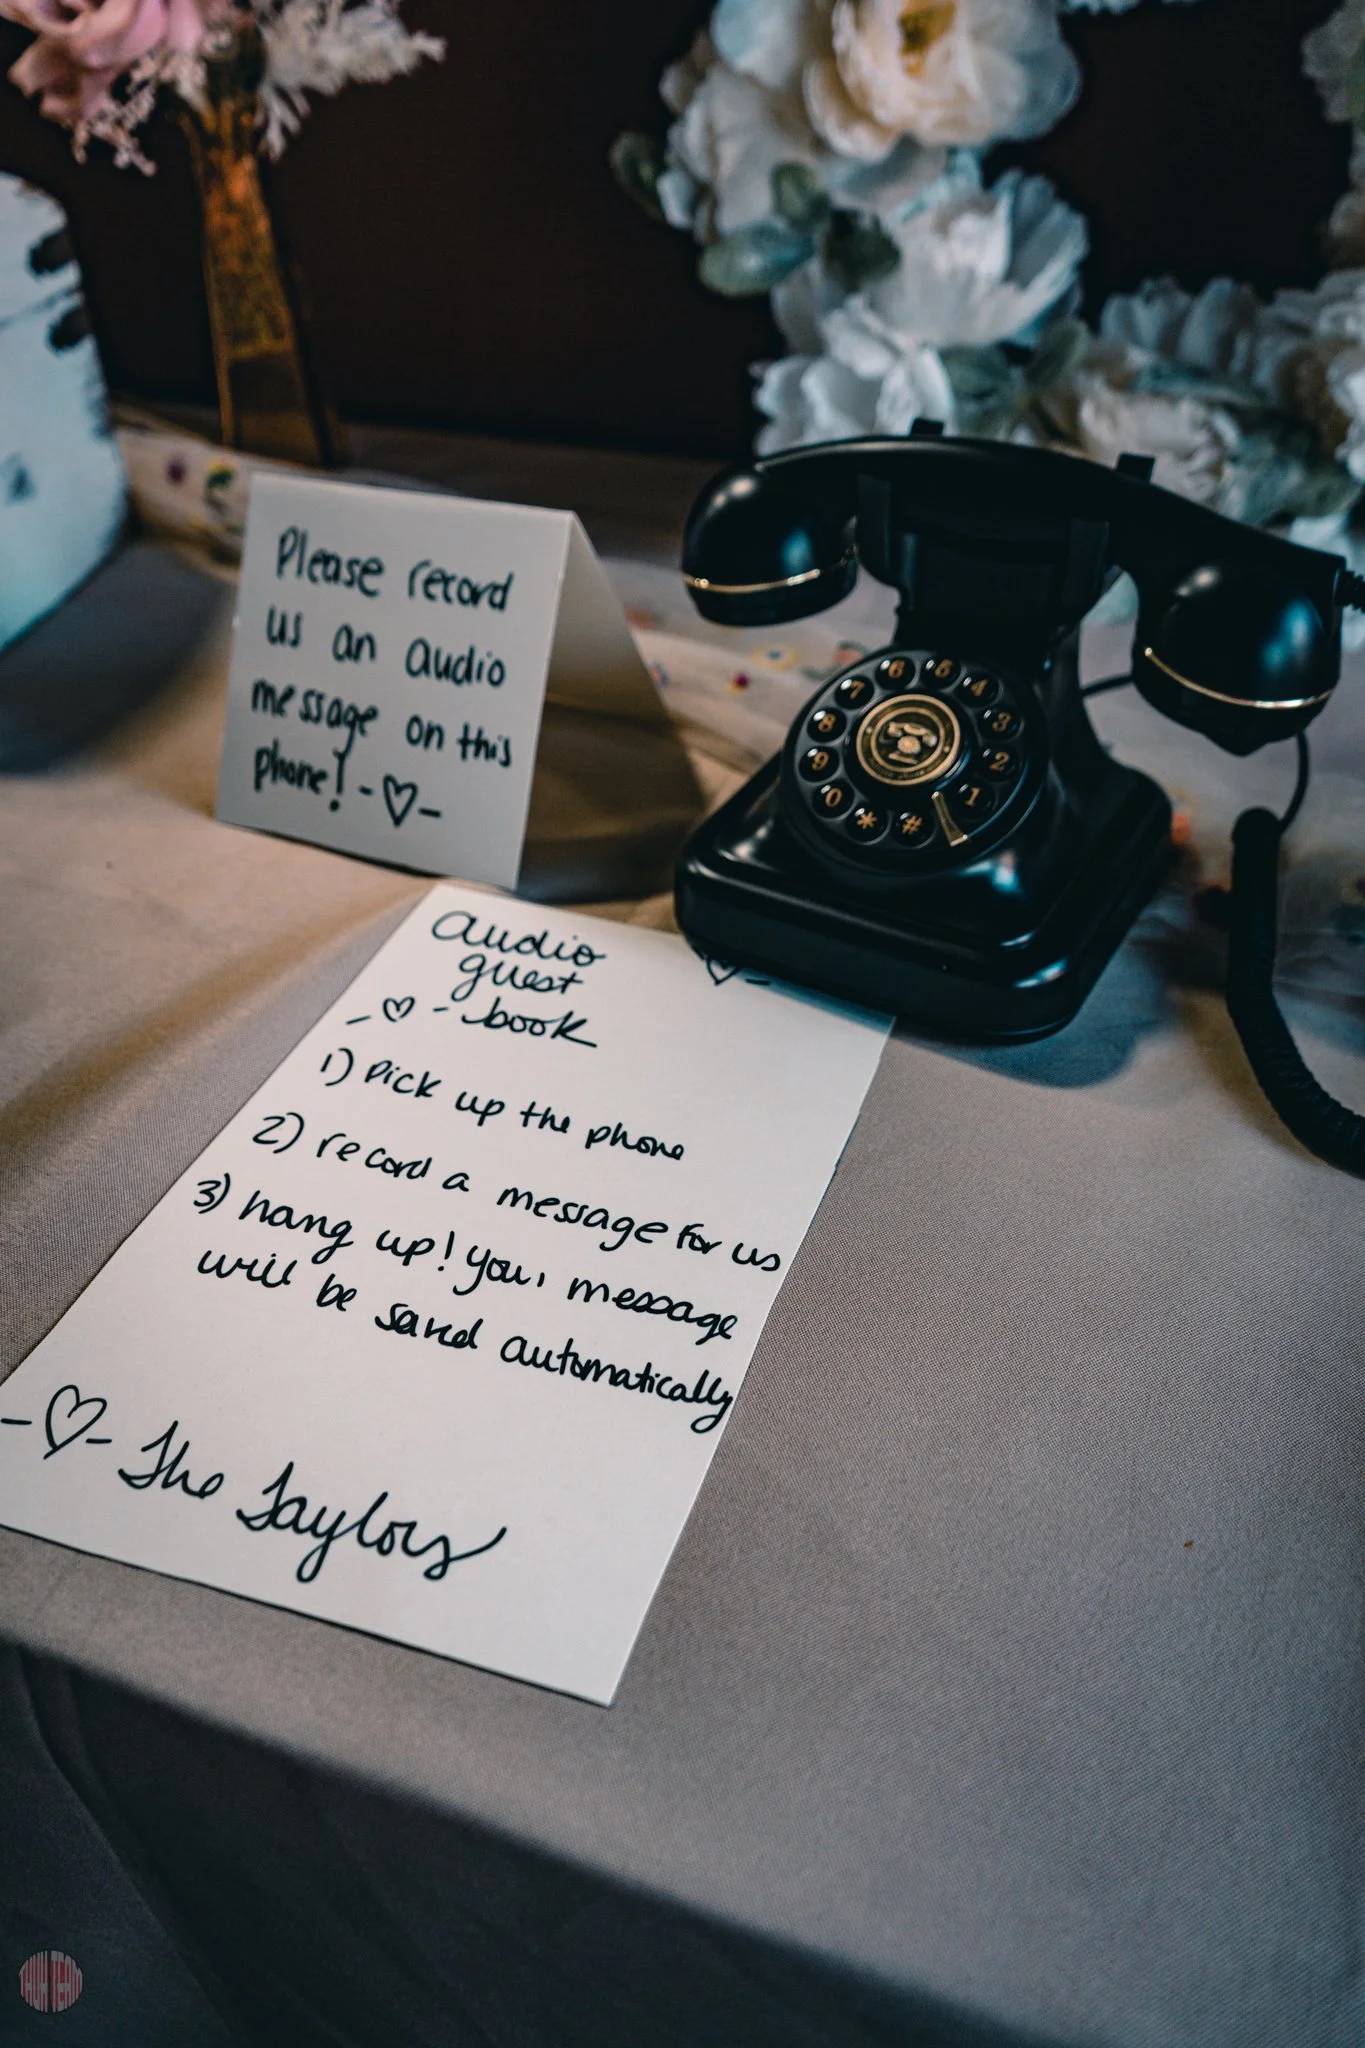 Please record
us an audio
message on this
phone! -♡-
audio
guest
-♡- book -♡-
1) Pick up the phone
2) record a message for us
3) hang up! your message
will be saved automatically
-♡- The Taylors
6 5 4 3 2 1
7 8 9 0 * #